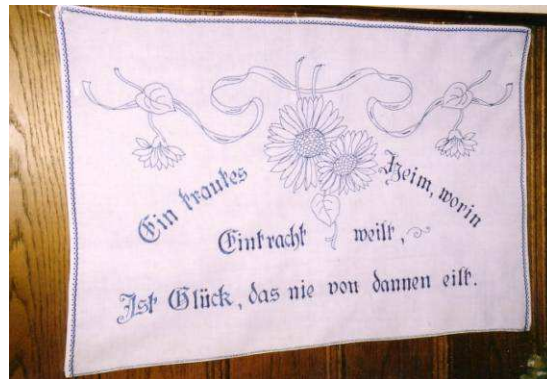 Ein trautes Heim, worin
Eintracht weilt,
Ist Glück, das nie von dannen eilt.